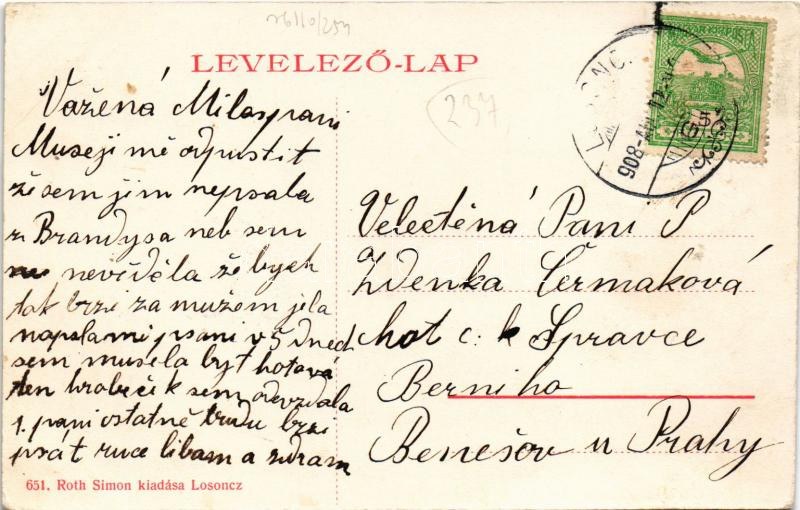 26110/254
LEVELEZŐ-LAP
237
Važená Milospani
Museji mě odpustit
že sem jim nepsala
z Brandysa neb sem
nevěděla že bych
tak brzi za mužem jela
napsla mi psani v 5 dnech
sem musela byt hotová
ten hrobeček sem odevzdala
j. pani ostatně budu brzi
psát ruce libam a zdram
Velectěná Pani P
Zdenka Čermaková
chot c: k Spravce
Berniho
Benešov u Prahy
651. Roth Simon kiadása Losoncz
LOSONC
908
MAGYAR KIR. POSTA